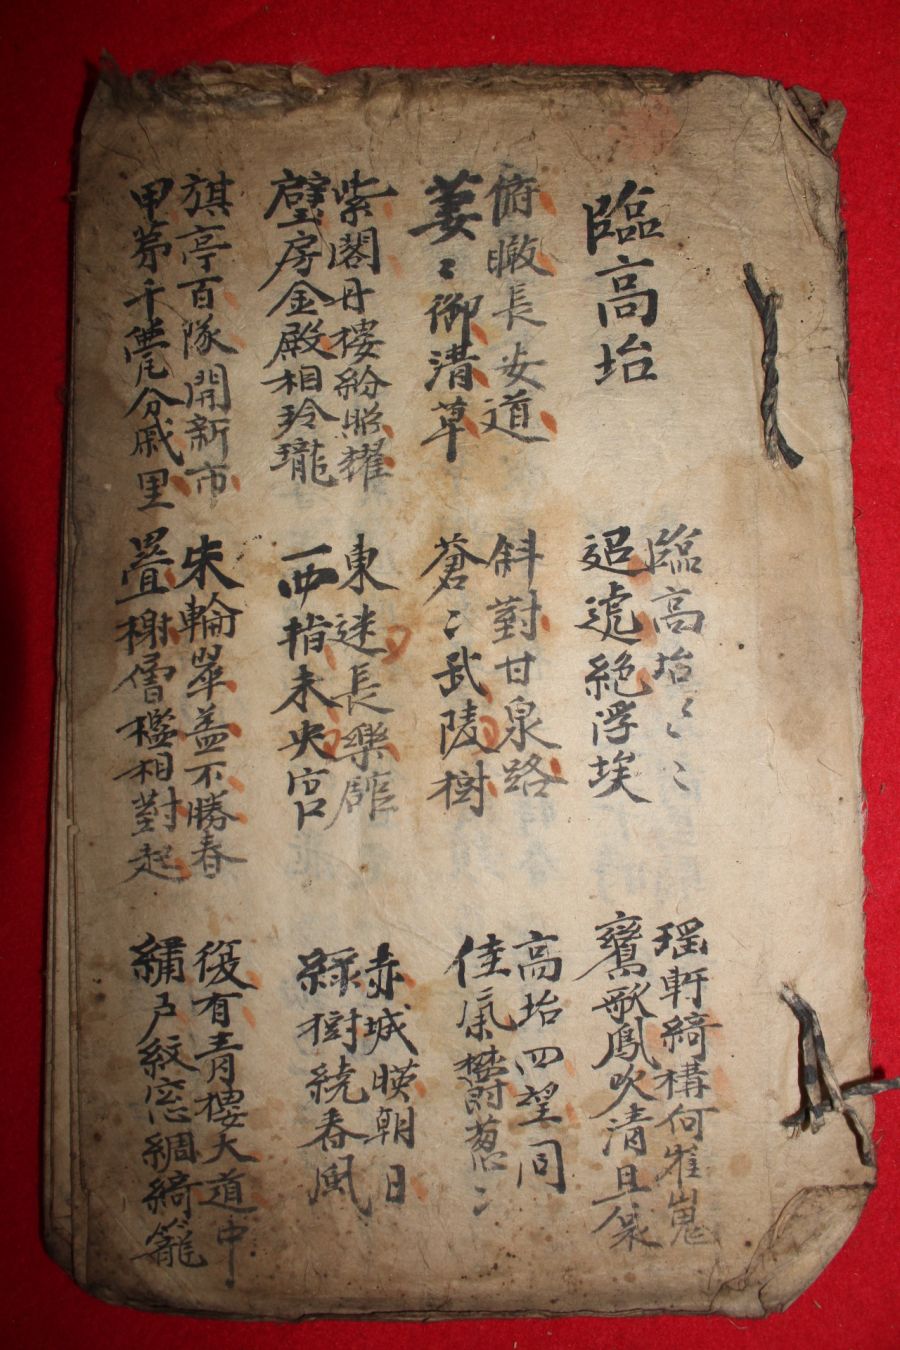 臨高坮
臨高坮〻〻
迢遞絕浮埃
瑶軒綺構何崔嵬
鸞歌鳳吹清且哀
俯瞰長安道
萋〻御清草
斜對甘泉路
蒼〻武陵樹
高坮四望同
佳氣欝葱〻
紫閣丹樓紛照耀
璧房金殿相玲瓏
東迷長樂館
西指未央宮
赤城暎朝日
綠樹繞春風
旗亭百隊開新市
甲第千甍分戚里
朱輪翠盖不勝春
疊榭層楹相對起
復有青樓大道中
繡戶紋窓綢綺籠